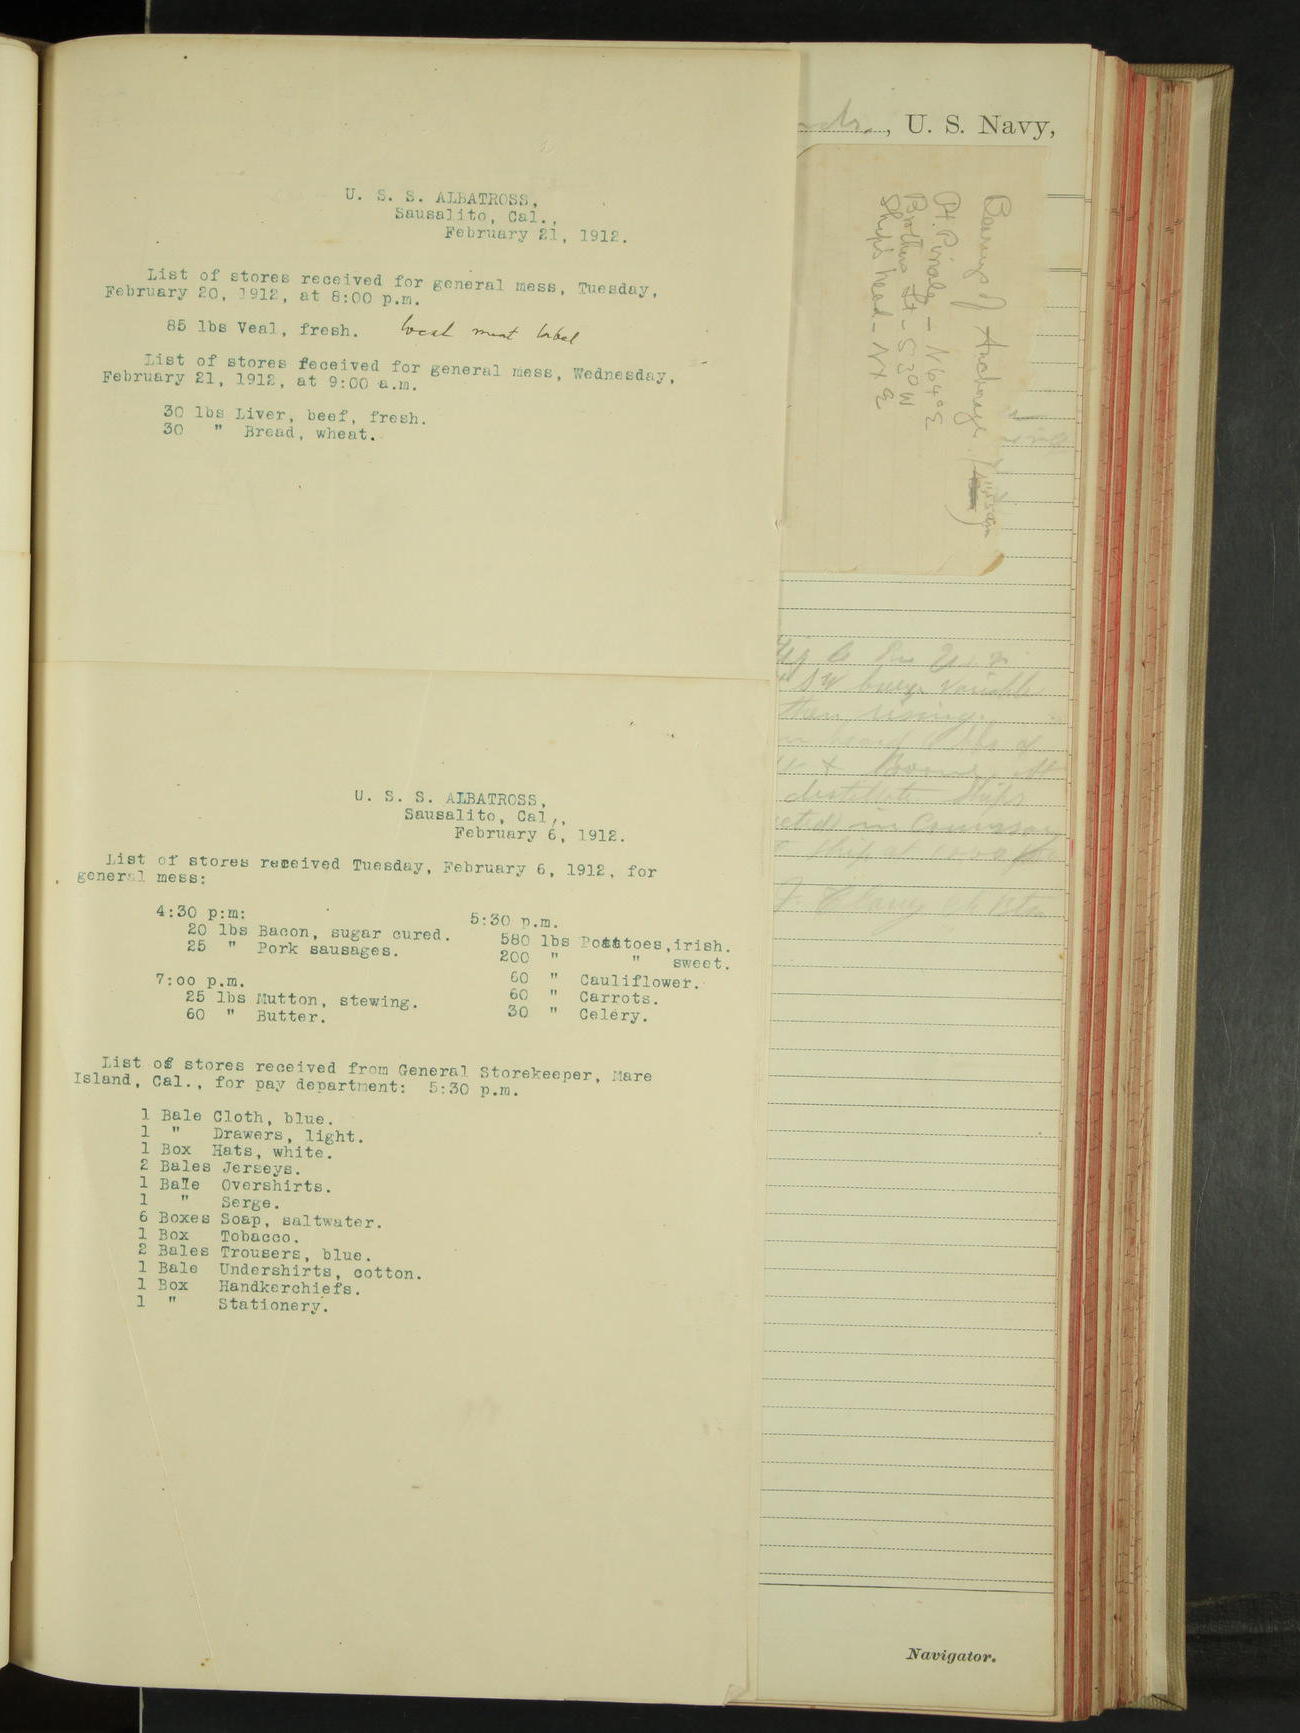 U. S. S. ALBATROSS,
Sausalito, Cal.,
February 21, 1912.
List of stores received for general mess, Tuesday,
February 20, 1912, at 8:00 p.m.
85 lbs Veal, fresh. local meat label
List of stores received for general mess, Wednesday,
February 21, 1912, at 9:00 a.m.
30 lbs Liver, beef, fresh.
30 " Bread, wheat.
U. S. S. ALBATROSS,
Sausalito, Cal.,
February 6, 1912.
List of stores received Tuesday, February 6, 1912, for
general mess:
4:30 p:m:
20 lbs Bacon, sugar cured.
25 " Pork sausages.
7:00 p.m.
25 lbs Mutton, stewing.
60 " Butter.
5:30 p.m.
580 lbs Potatoes,irish.
200 " " sweet.
60 " Cauliflower.
60 " Carrots.
30 " Celery.
List of stores received from General Storekeeper, Mare
Island, Cal., for pay department: 5:30 p.m.
1 Bale Cloth, blue.
1 " Drawers, light.
1 Box Hats, white.
2 Bales Jerseys.
1 Bale Overshirts.
1 " Serge.
6 Boxes Soap, saltwater.
1 Box Tobacco.
2 Bales Trousers, blue.
1 Bale Undershirts, cotton.
1 Box Handkerchiefs.
1 " Stationery.
, U. S. Navy,
Bearings of Anchorage
Pt. Pinole - N64°E
Brothers Lt - S 53°W
Ship's head - NxE
breeze variable
then rising.
distilled ships
in Comprsn
ship at 1000
Navigator.